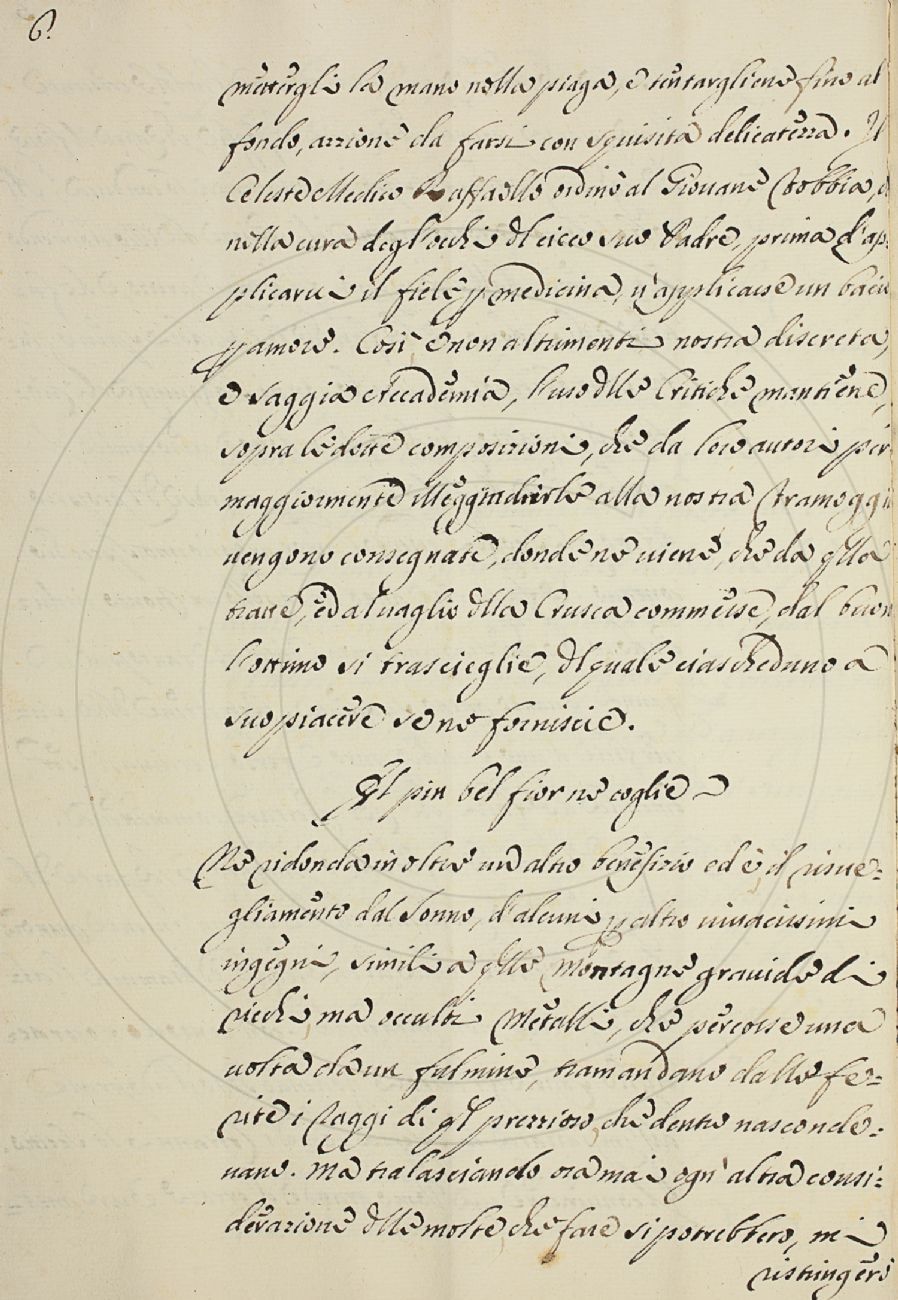 6.
mettergli la mano nella piaga, e tentargliene fino al
fondo, azzione da farsi con squisita delicatezza. Il
Celeste Medico Raffaello ordinò al Giovane Tobbia,
nella cura degl'occhi dl cieco suo Padre, prima d'ap:
plicarvi il fiele p medicina, v'applicasse un bacio
p amore. Così e non altrimenti nostra discreta,
e saggia Accademia, l'uso dlle Critiche mantiene,
sopra le dotte composizioni, che da loro autori per
maggiormente illeggiadrirle alla nostra Tramoggia
vengono consegnate, donde ne viene, che da qlla
tratte, ed al vaglio dlla Crusca commesse, dal buon
l'ottimo si trascieglie, dl quale ciascheduno a
suo piacere se ne forniscie.
Il più bel fior ne coglie
Ne ridonda in oltre un altro benefizio ed è, il risve=
gliamento dal sonno, d'alcuni p altro vivacissimi
ingegni, simili a qlle Montagne gravide di
ricchi, ma occulti Metalli, che percosse una
volta da un fulmine, tramandano dalle fe=
rite i raggi di ql prezzioso, che dentro nasconde:
vano. Ma tralasciando ora mai ogn'altra consi:
derazione dlle molte, che fare si potrebbero, mi
ristringerò